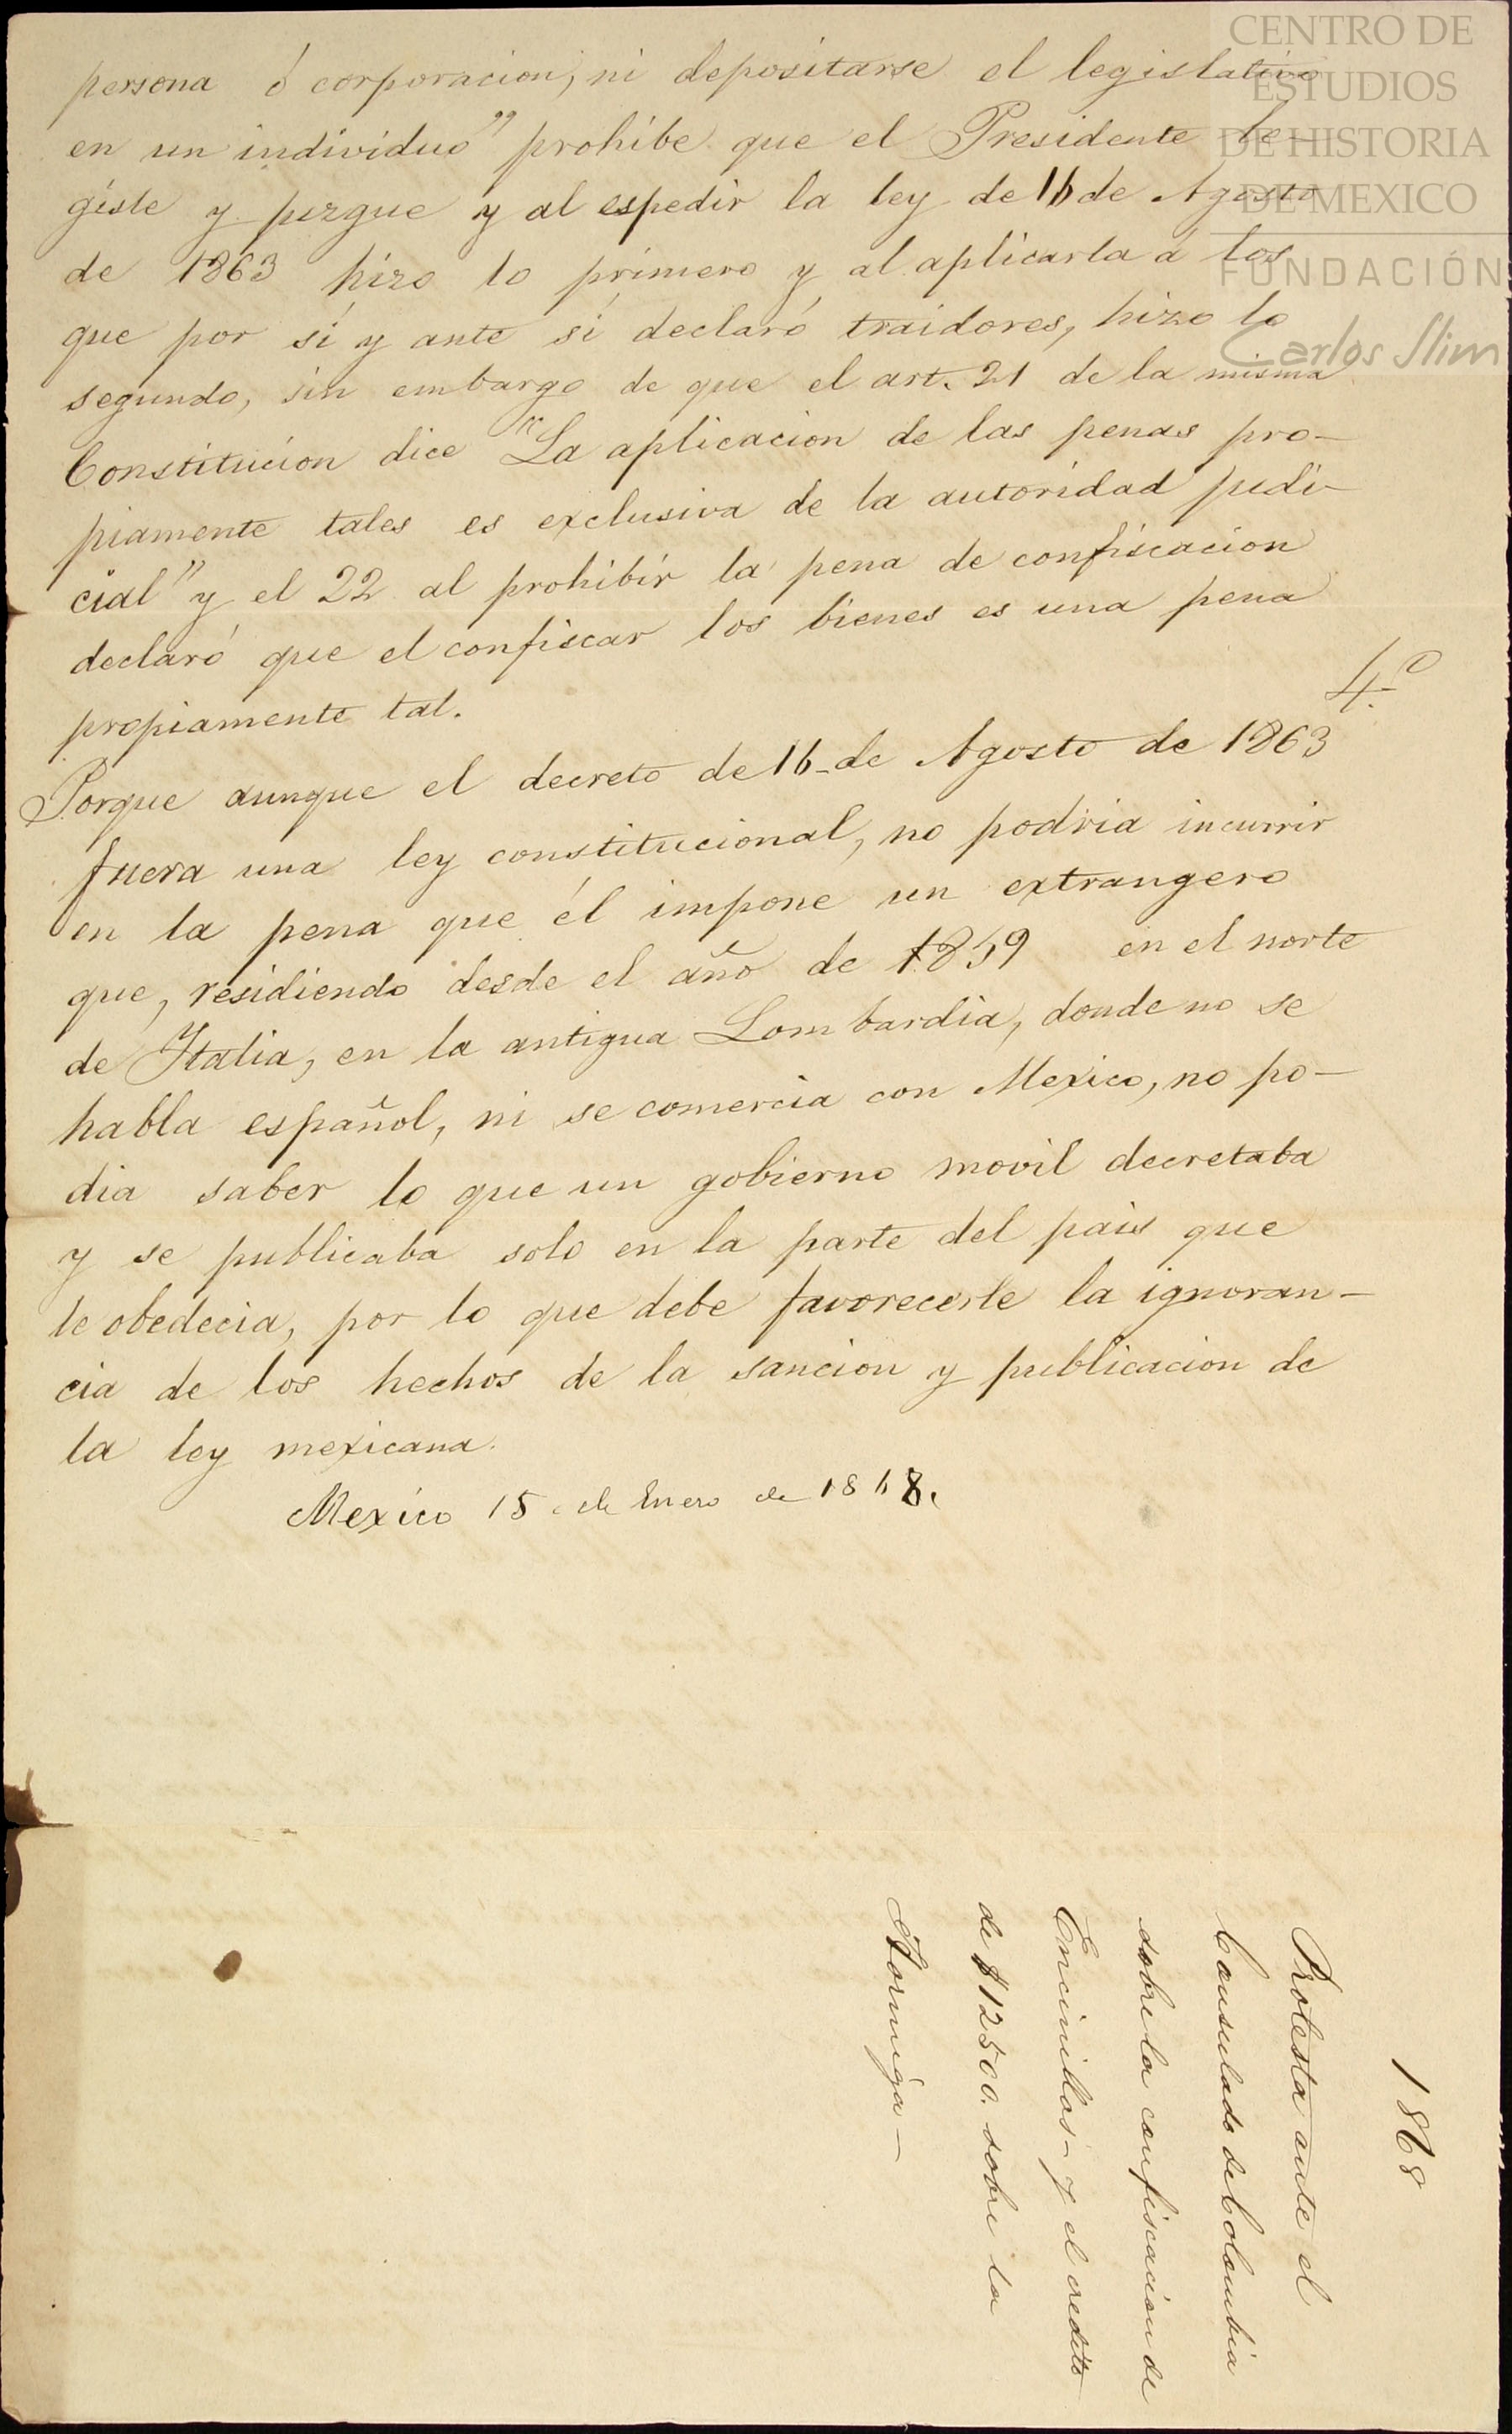 persona ó corporacion, ni depositarse el legislativo
en un individuo" prohibe que el Presidente le-
gisle y juzgue y al espedir la ley de 16 de Agosto
de 1863 hizo lo primero y al aplicarla á los
que por sí y ante sí declaró traidores, hizo lo
segundo, sin embargo de que el art. 21 de la misma
Constitucion dice "La aplicacion de las penas pro-
piamente tales es exclusiva de la autoridad judi-
cial" y el 22 al prohibir la pena de confiscacion
declaró que el confiscar los bienes es una pena
propiamente tal.
4.o
Porque aunque el decreto de 16 de Agosto de 1863
fuera una ley constitucional, no podria incurrir
en la pena que él impone un extrangero
que, residiendo desde el año de 1859 en el norte
de Italia, en la antigua Lombardia, donde no se
habla español, ni se comercia con Mexico, no po-
dia saber lo que un gobierno movil decretaba
y se publicaba solo en la parte del pais que
le obedecia, por lo que debe favorecerle la ignoran-
cia de los hechos de la sancion y publicacion de
la ley mexicana.
Mexico 15 de Enero de 1868.
1868
Protesta ante el
Consulado de Colombia
sobre la confiscacion de
Encinillas - y el credito
de $12500. sobre la
Hormiga -
CENTRO DE
ESTUDIOS
DE HISTORIA
DE MEXICO
FUNDACIÓN
Carlos Slim